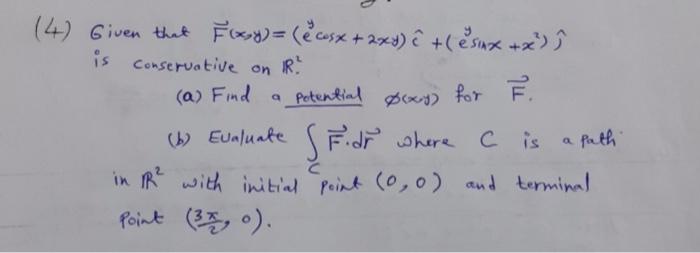 (4) Given that F⃗(x,y) = (e^y cosx + 2xy) î + (e^y sinx + x²) ĵ
is conservative on ℝ².
(a) Find a potential ø(x,y) for F⃗.
(b) Evaluate ∫_C F⃗·dr⃗ where C is a path
in ℝ² with initial point (0,0) and terminal
point (3π/2, 0).